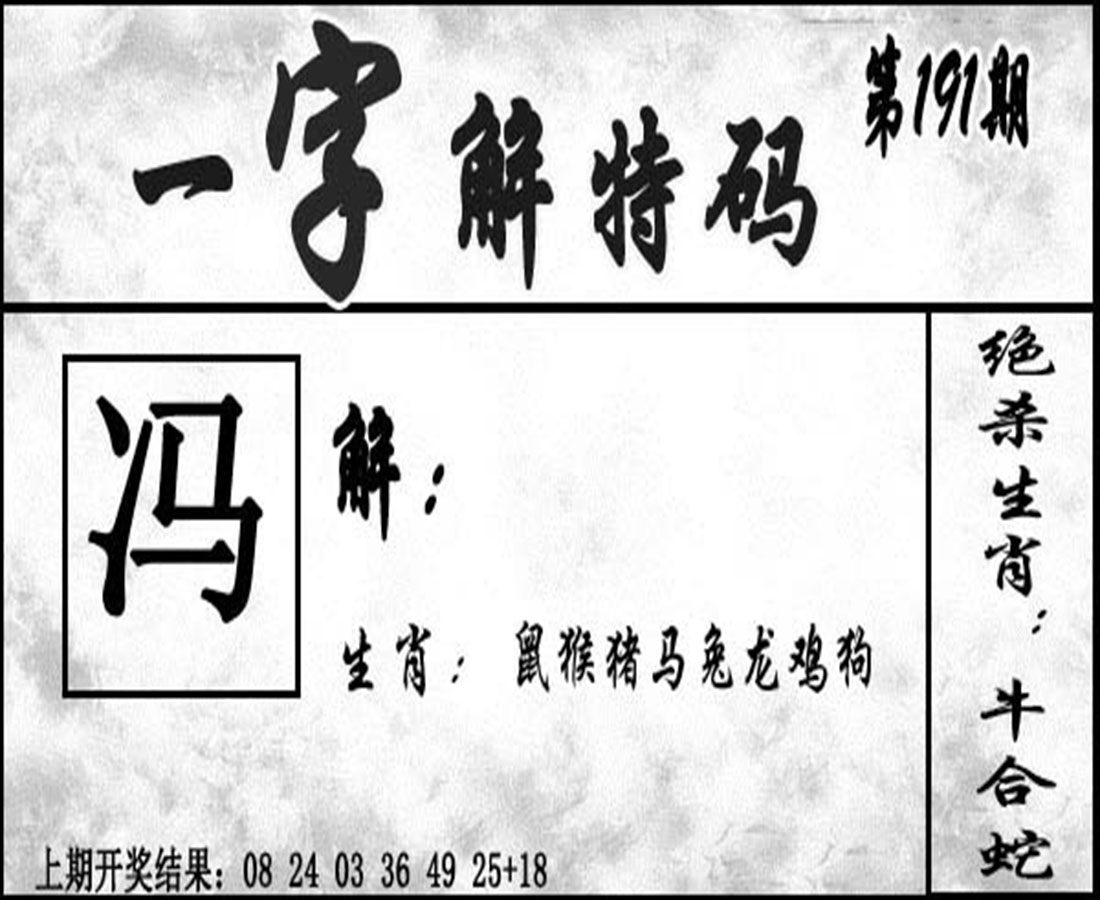 一字解特码
第191期
冯
解：
生肖：鼠猴猪马兔龙鸡狗
绝杀生肖：牛合蛇
上期开奖结果：08 24 03 36 49 25+18